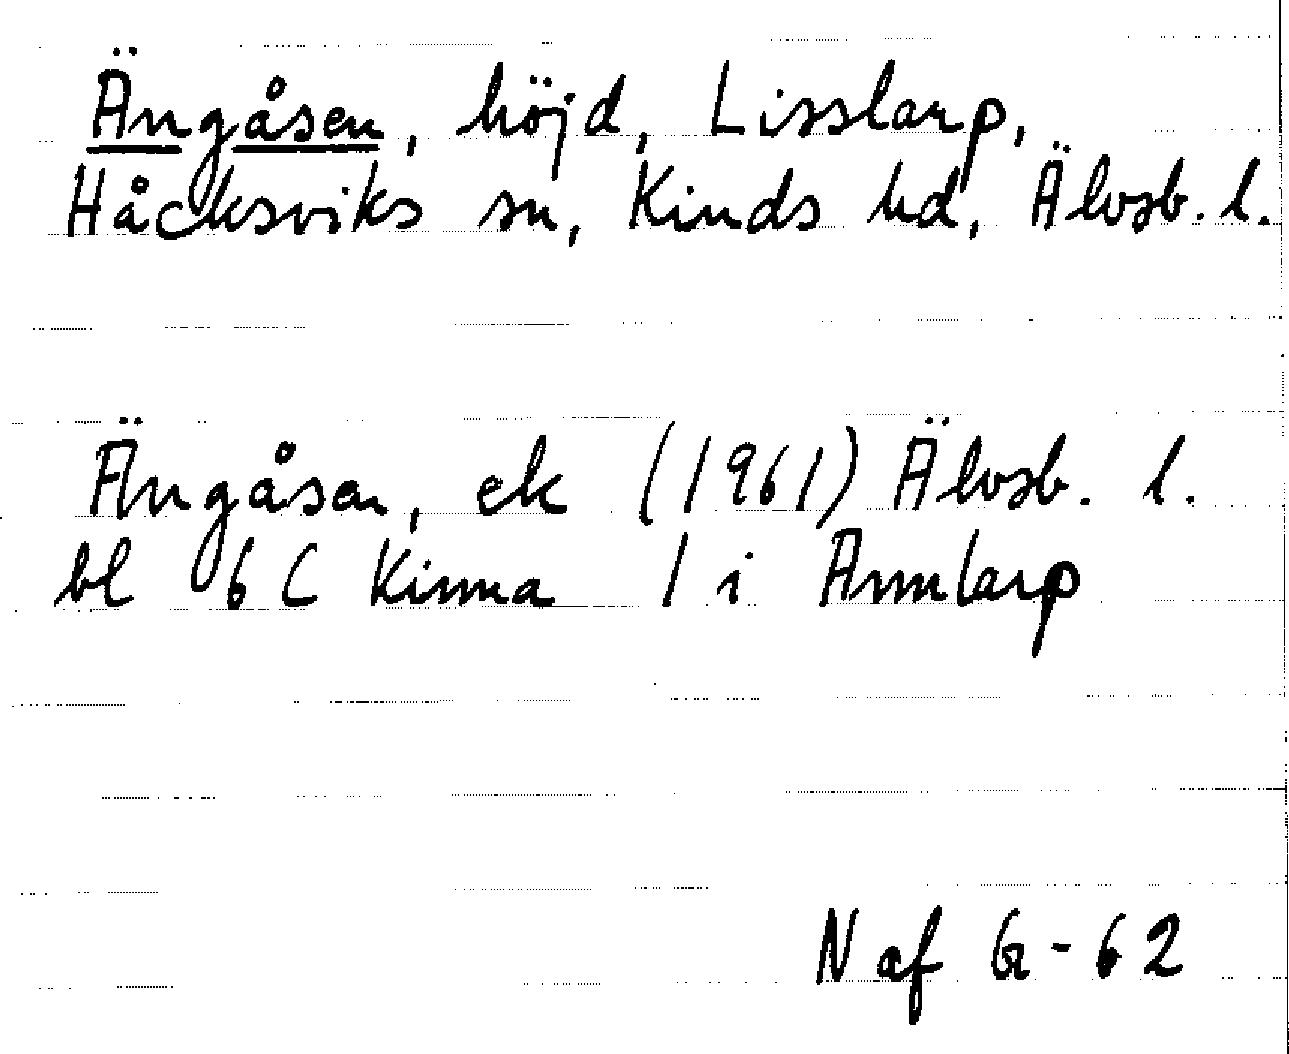 Ängåsen, höjd, Lisslarp,
Håcksviks sn, Kinds hd, Älvsb. l.
Ängåsen, ek (1961) Älvsb. l.
bl 6 C Kinna 1 i Annlarp
N af G-62